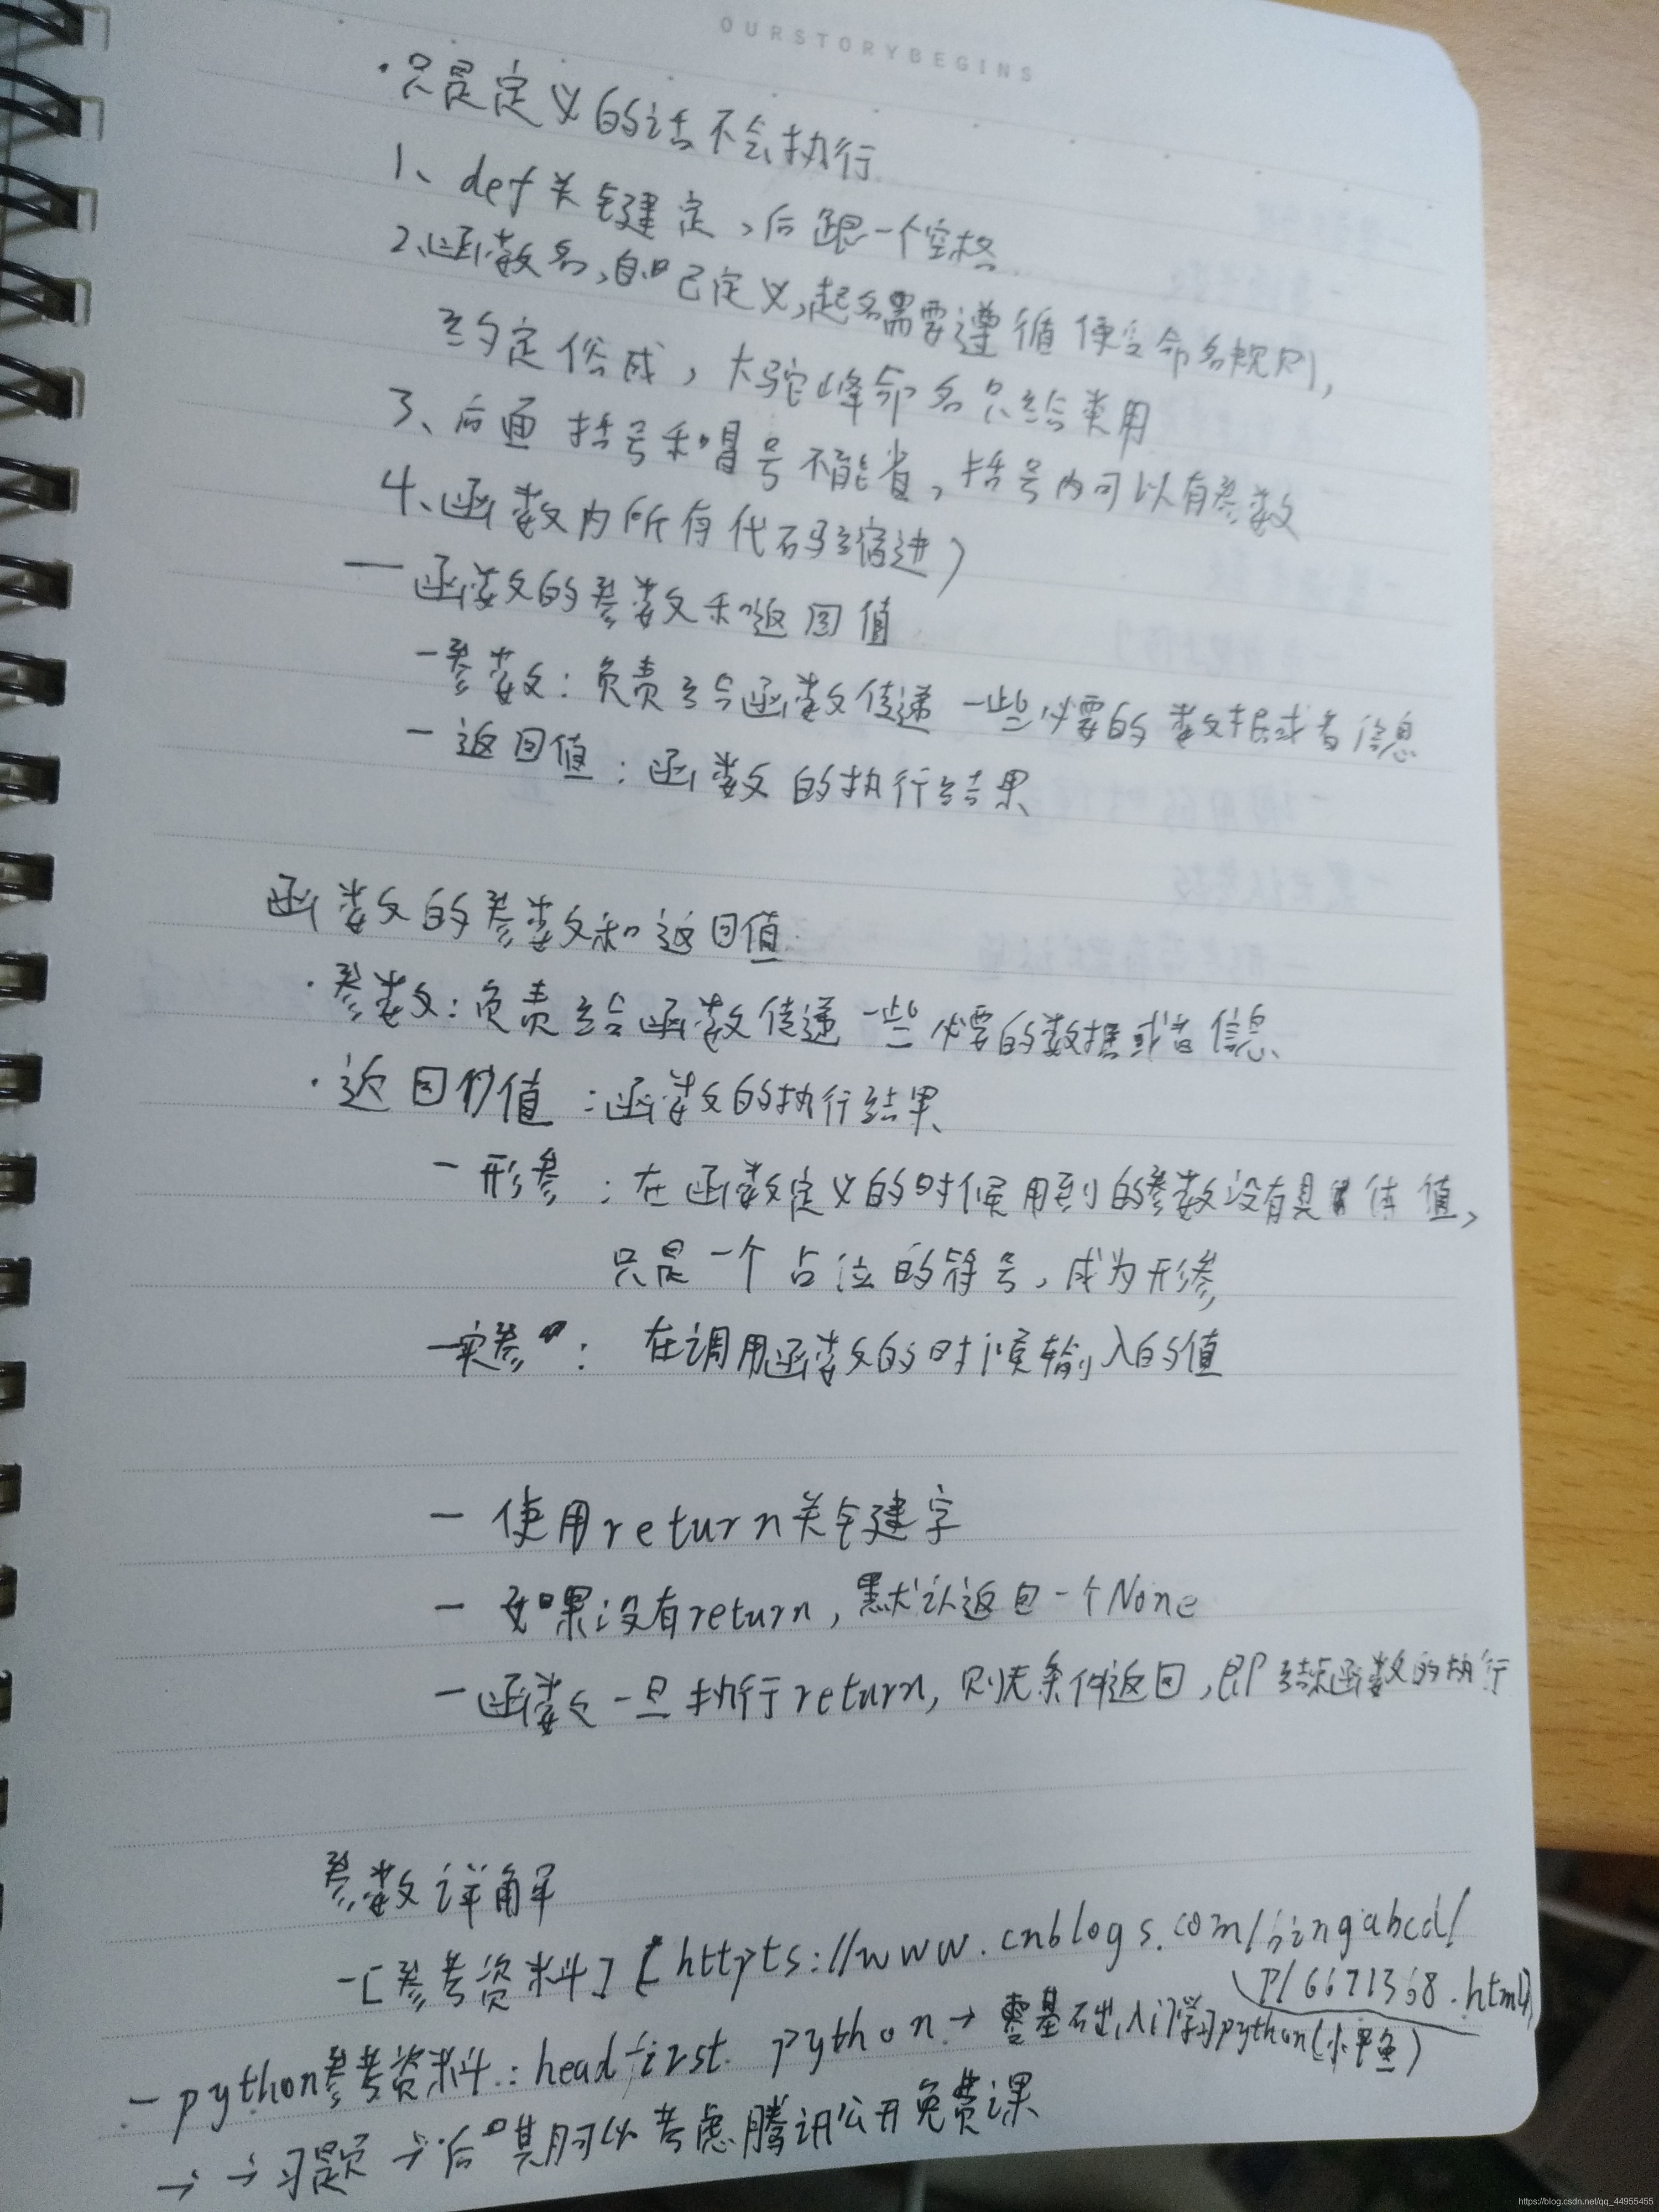 OURSTORYBEGINS
·只是定义的话不会执行
1、def关键定,后跟一个空格
2、函数名,自己定义,起名需要遵循便变命名规则,
约定俗成,大驼峰命名只给类用
3、后面括号和冒号不能省,括号内可以有参数
4、函数内所有代码缩进)
— 函数的参数和返回值
- 参数:负责给函数传递一些必要的数据或者信息
- 返回值:函数的执行结果
函数的参数和返回值
·参数:负责给函数传递一些必要的数据或者信息、
·返回值:函数的执行结果
- 形参:在函数定义的时候用到的参数没有具体值,
只是一个占位的符号,成为形参
- 实参:在调用函数的时候输入的值
- 使用return关键字
- 如果没有return,默认返回一个None
- 函数一旦执行return,则无条件返回,即结束函数的执行
参数详解
-[参考资料][httpts://www.cnblogs.com/bingabcd/
p/6671368.html]
- python参考资料:headfirst python→零基础入门学习python(小甲鱼)
→→习题→后期可以考虑腾讯公开免费课
https://blog.csdn.net/qq_44955455